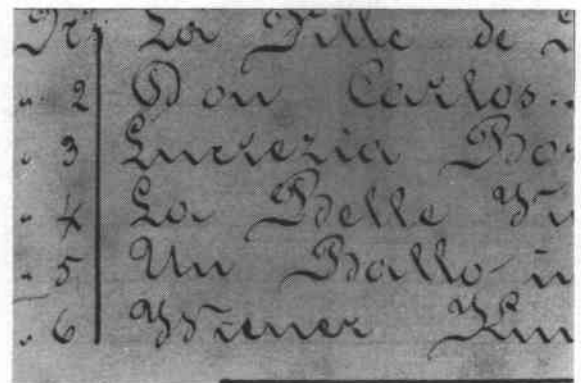 Nr. La Fille de
" 2 Don Carlos..
" 3 Lucrezia Bo
" 4 La Belle
" 5 Un Ballo in
" 6 Wiener